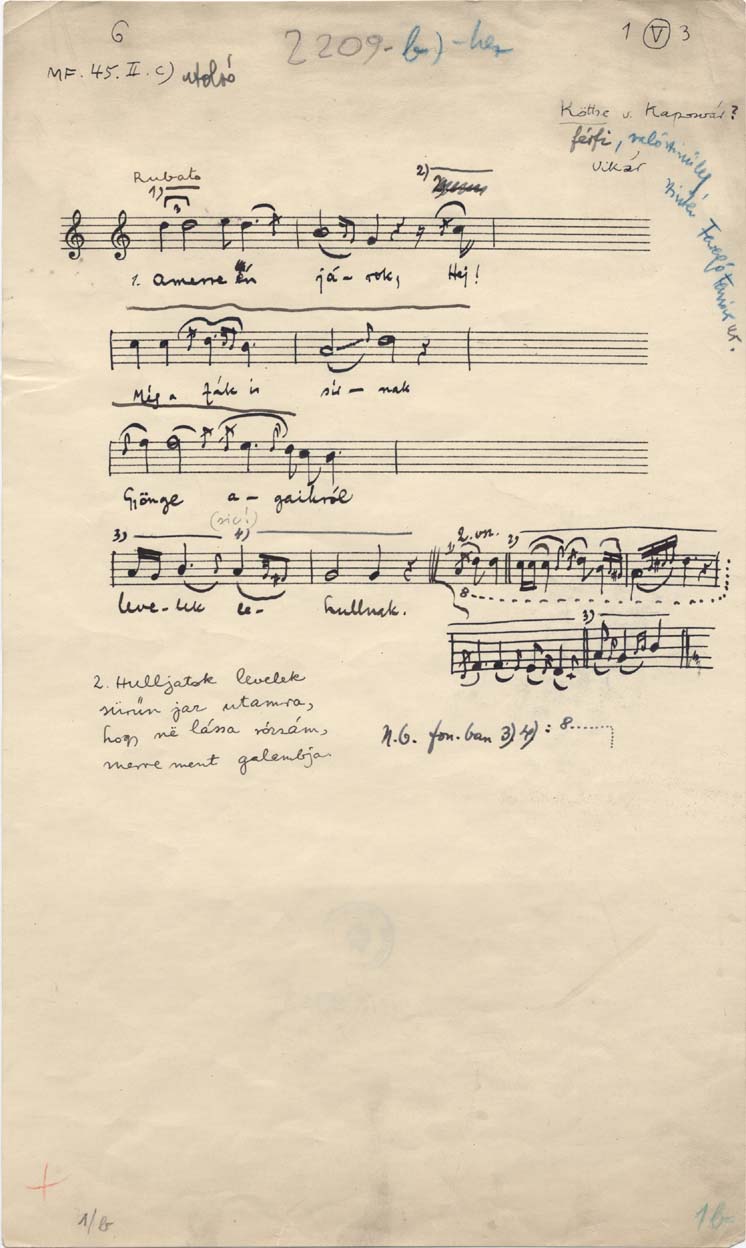 6
2209-b)-hez
1 V 3
MF. 45. II. c) utolsó
Köttse v. Kaposvár?
férfi, valószínűleg
Vikár
Tanár úr.
Rubato
1)
3
2)
1. Amerre én já-rok, Hej!
Még a fák is sír-nak
Gyönge a-gaikról
(sic!)
3) 4)
1) 2. vsz. 2)
8
leve-lek le- hullnak.
3)
2. Hulljatok levelek
sürün jar utamra,
hogy në lássa rózsám,
merre ment galambja.
N.B. fon.ban 3) 4) : 8
1/b
1b